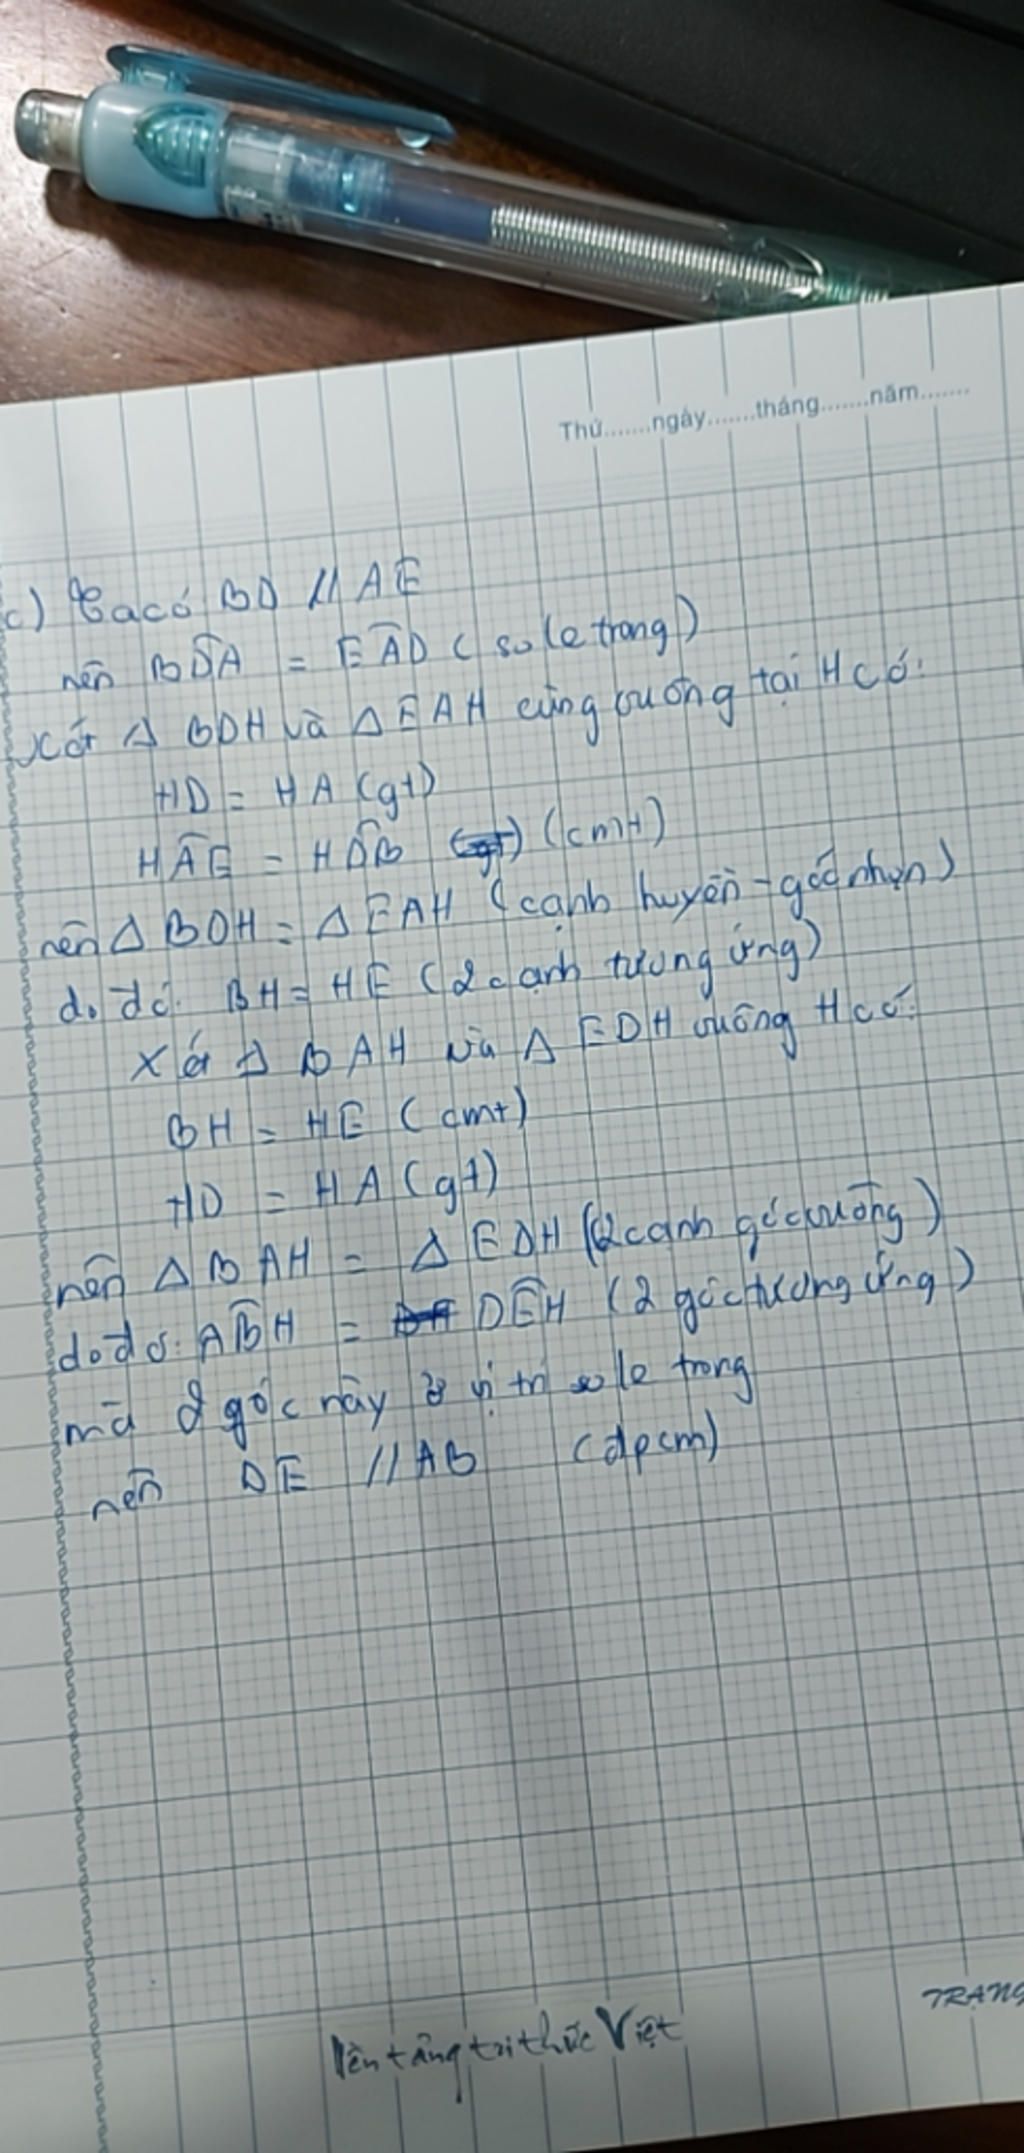 Thứ.......ngày.......tháng.......năm.......
c) Ta có BD // AE
nên BD̂A = EÂD (so le trong)
Xét Δ BDH và Δ EAH cùng vuông tại H có:
HD = HA (gt)
HÂE = HD̂B (cmt)
nên Δ BDH = Δ EAH (cạnh huyền - góc nhọn)
do đó: BH = HE (2 cạnh tương ứng)
Xét Δ BAH và Δ EDH vuông H có:
BH = HE (cmt)
HD = HA (gt)
nên Δ BAH = Δ EDH (2 cạnh góc vuông)
do đó: AB̂H = DÊH (2 góc tương ứng)
mà 2 góc này ở vị trí so le trong
nên DE // AB (đpcm)
TRANG
nền tảng tri thức Việt